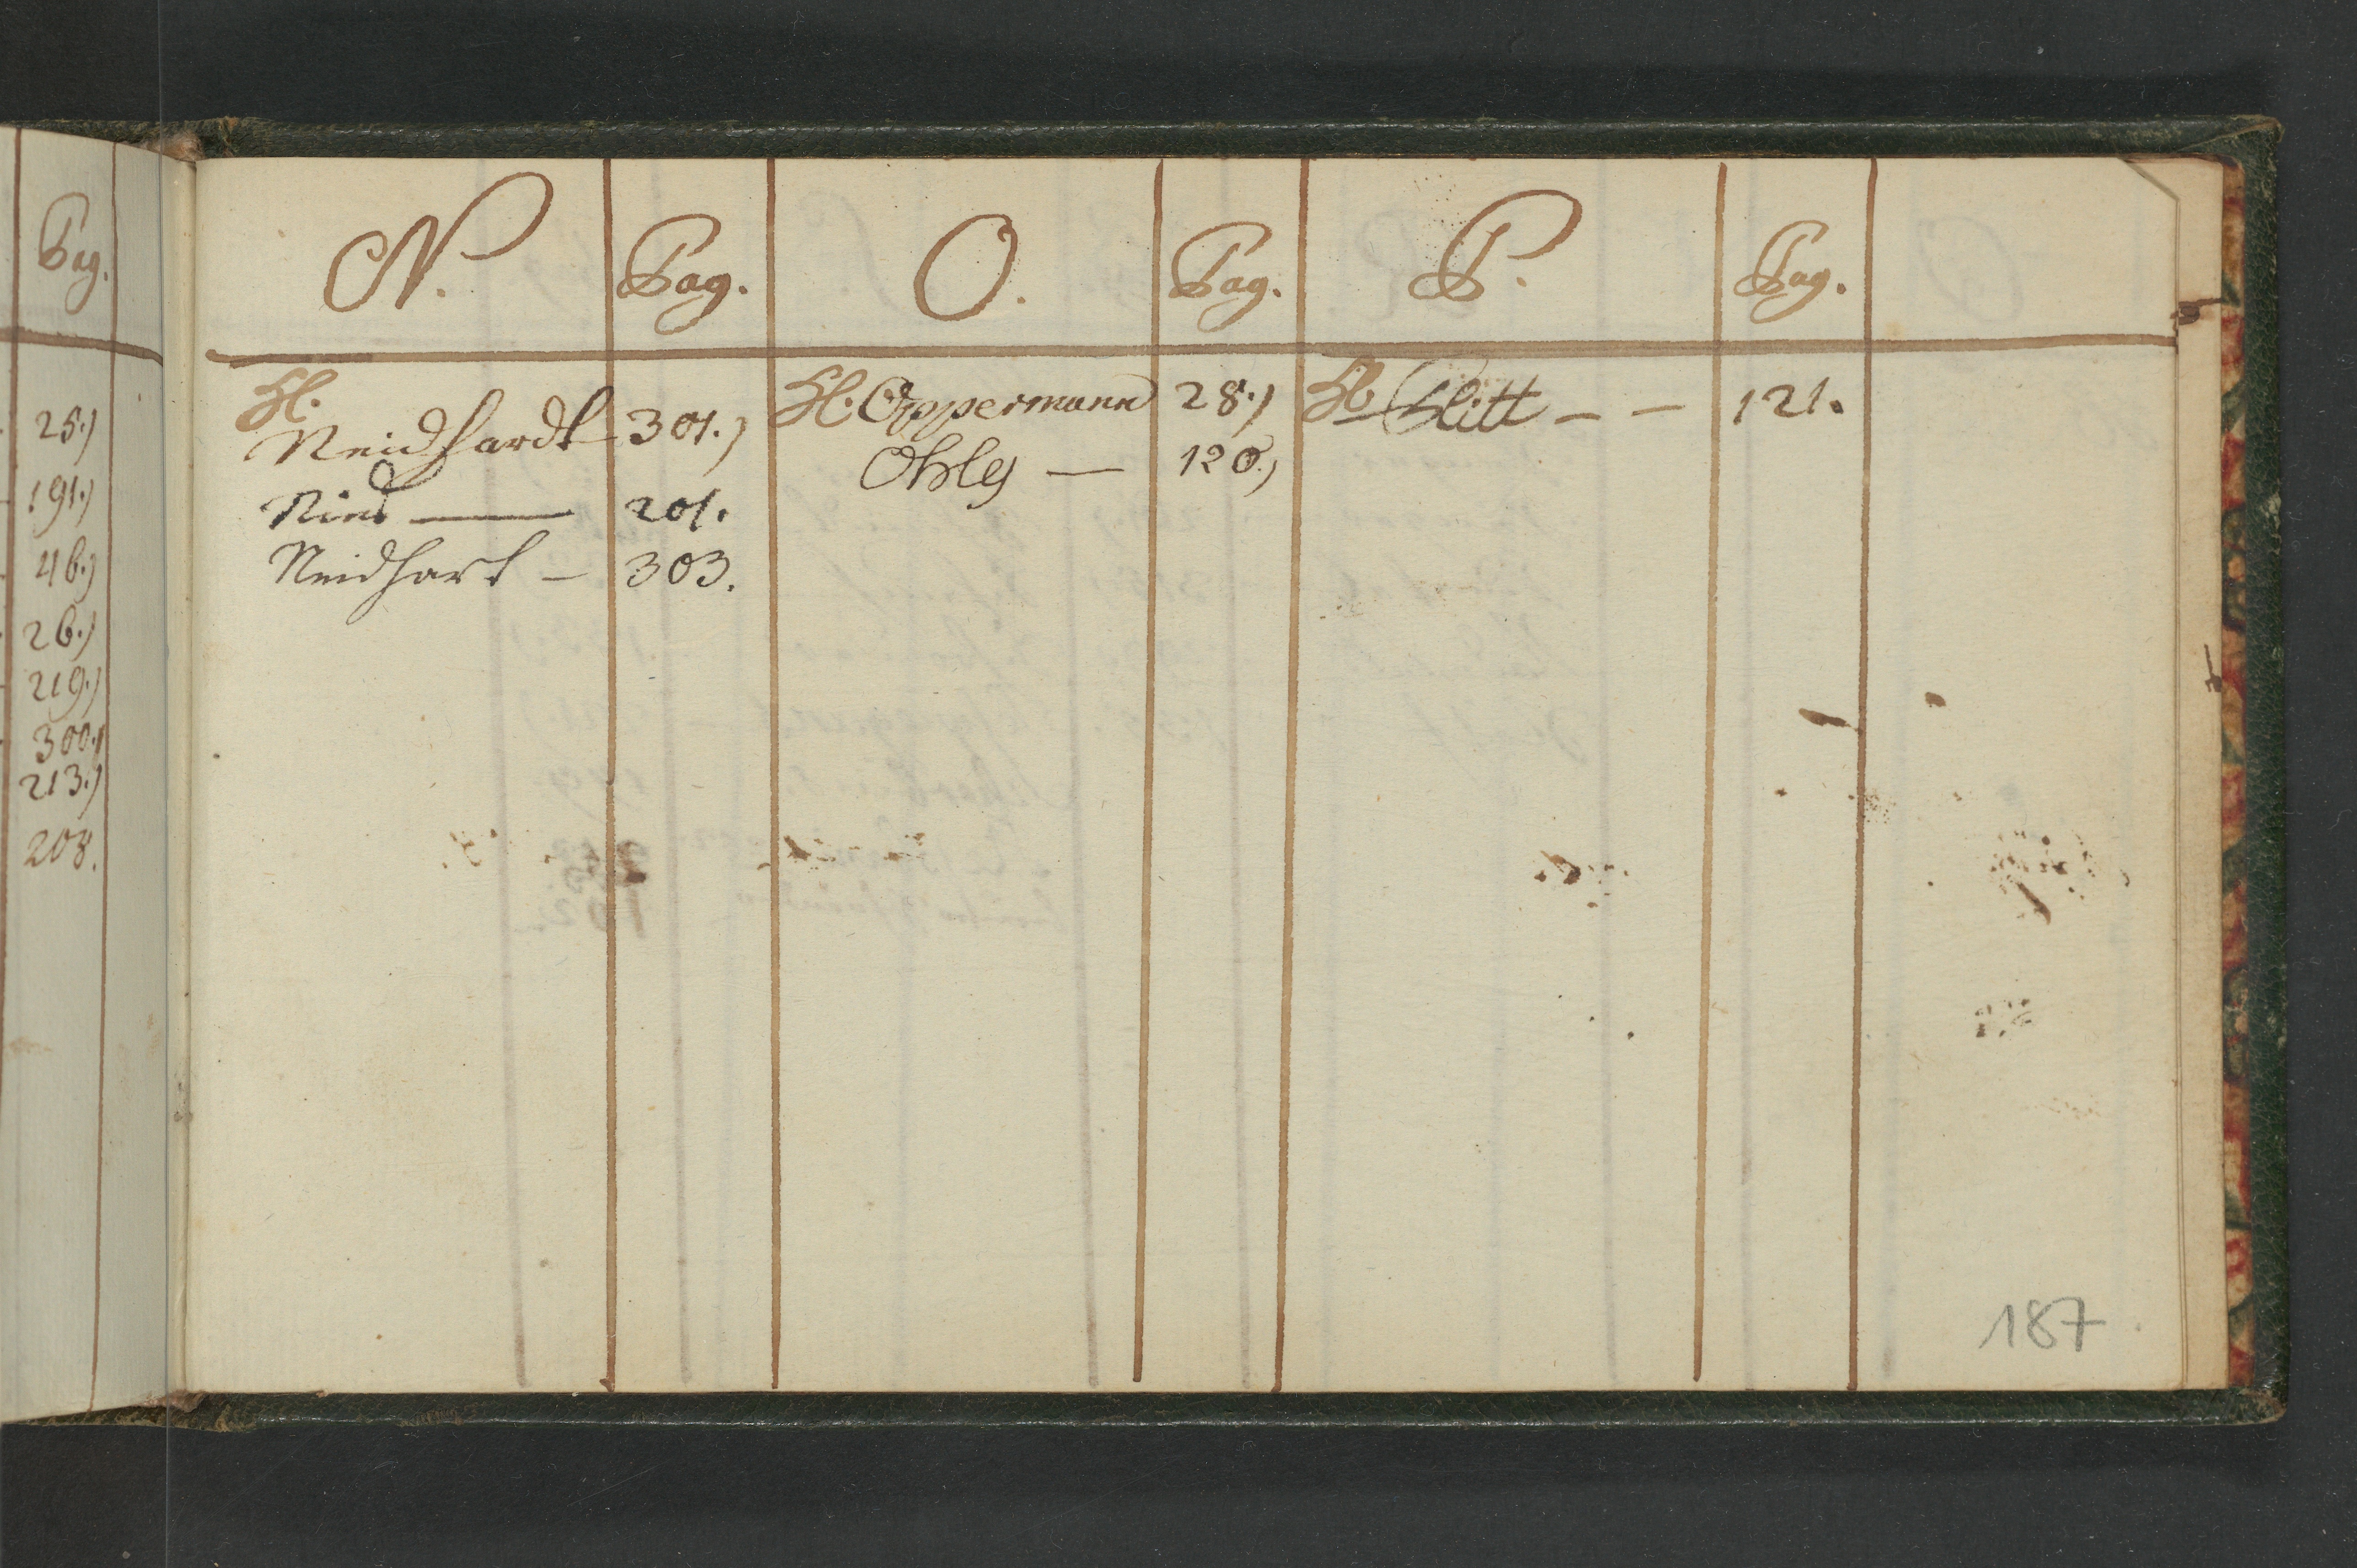 Pag.
25.)
191.)
46.)
26.)
219.)
300.)
213.)
208.
N. Pag. O. Pag. P. Pag.
H. Neidhardt 301.) H. Oppermann 28.) H. Plitt – – 121.
Nied — 201. Ohly — 120.)
Neidhart – 303.
187